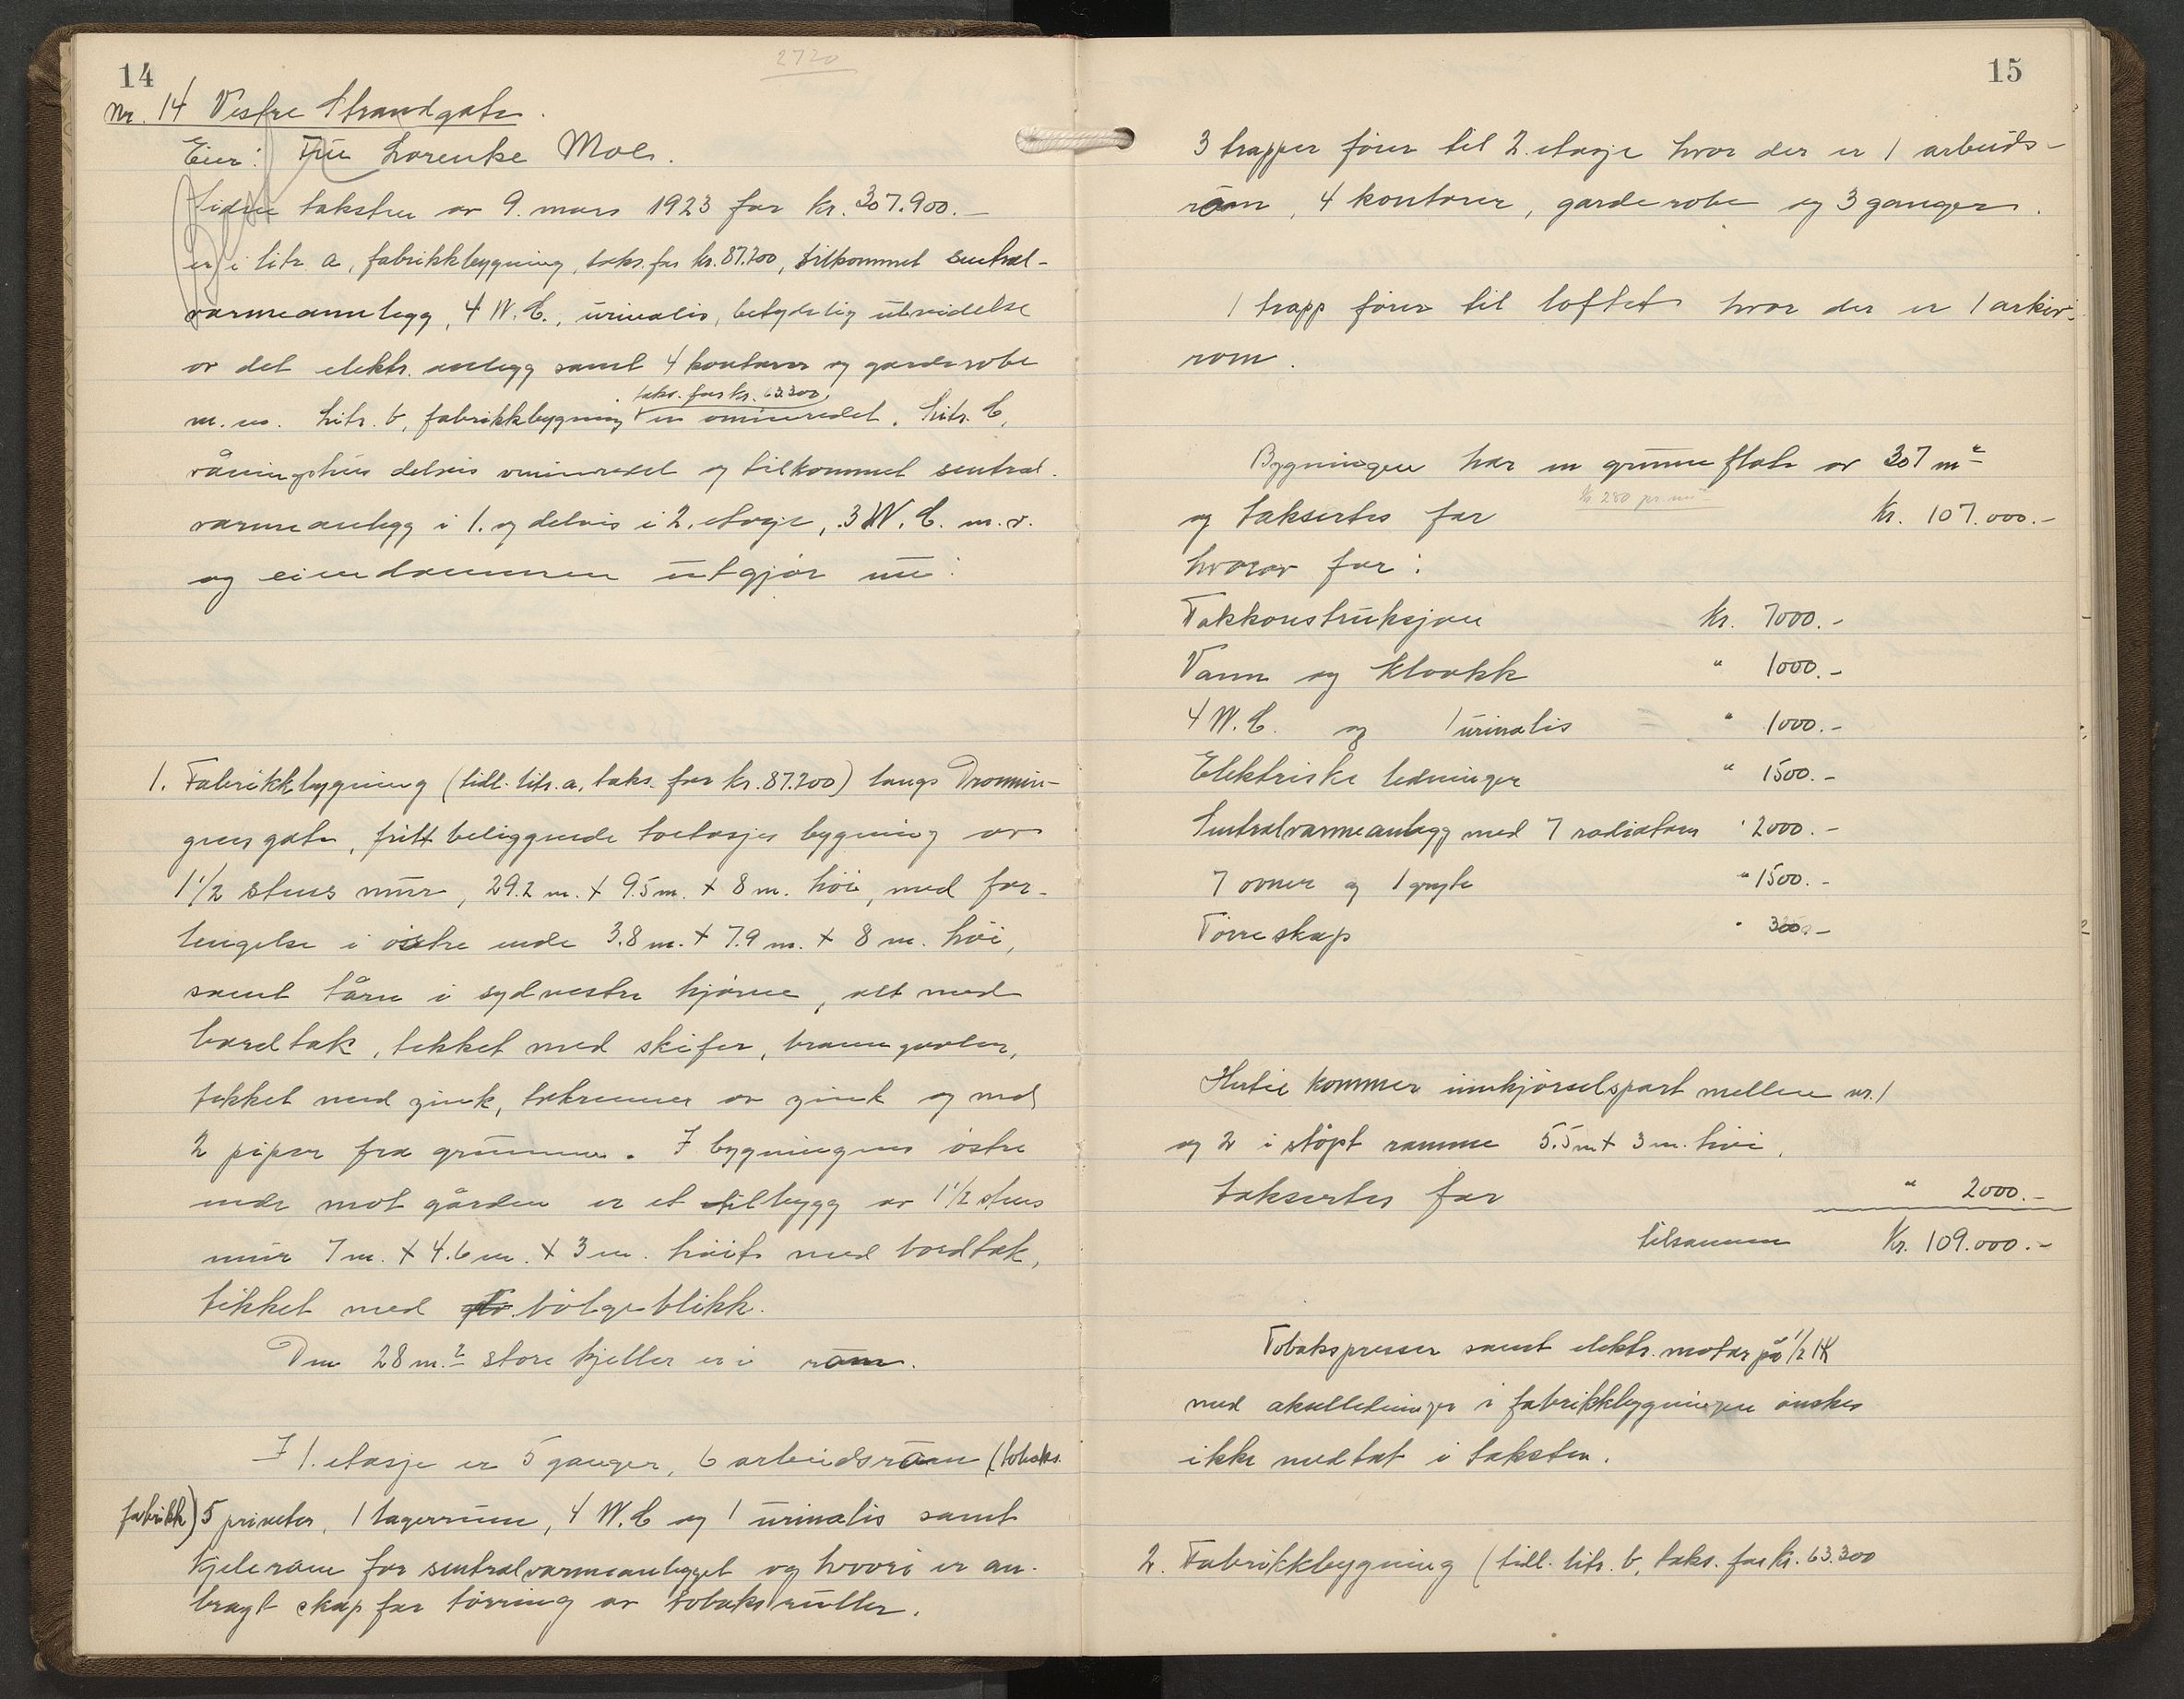 14
2720
Nr. 14 Vestre Strandgate.
Eier: Fru Lorentse Moe.
Siden taksten av 9. mars 1923 for kr. 307.900.-
er i litr. a, fabrikkbygning, taks. for kr. 87.200, tilkommet sentral-
varmeannlegg, 4 W.C., urinalis, betydelig utvidelse
av det elektr. anlegg samt 4 kontorer og garderobe
taks. for kr. 63.300,
m. m. Litr. b, fabrikkbygning er ominnredet. Litr. C,
våningshus delvis ominnredet og tilkommet sentral-
varmeanlegg i 1. og delvis i 2. etasje, 3 W.C. m.v.
og eiendommen utgjør nu:
1. Fabrikkbygning (tidl. litr. a, taks. for kr. 87.200) langs Dronnin-
gens gate, fritt beliggende toetasjes bygning av
1 1/2 stens mur, 29.2 m. + 9.5 m. + 8 m. høi, med for-
lengelse i østre ende 3.8 m. + 7.9 m. + 8 m. høi,
samt tårn i sydvestre hjørne, alt med
bordtak, tekket med skifer, branngavler,
tekket med zink, takrenner av zink og med
2 piper fra grunnen. I bygningens østre
ende mot gården er et tilbygg av 1 1/2 stens
mur 7 m. + 4.6 m. + 3 m. høit med bordtak,
tekket med bølgeblikk.
Den 28 m.2 store kjeller er i rom.
I 1. etasje er 5 ganger, 6 arbeidsrom (tobaks-
fabrikk) 5 priveter, 1 lagerrum, 4 W.C og 1 urinalis samt
kjelerom for sentralvarmeanlegget og hvori er an-
bragt skap for tørring av tobaksruller.
15
3 trapper fører til 2. etasje hvor der er 1 arbeids-
rom, 4 kontorer, garderobe og 3 ganger.
1 trapp fører til loftet hvor der er 1 arkiv-
rom.
Bygningen har en grunnflate av 307 m2
kr. 280 pr. m2
og takseres for Kr. 107.000.-
hvorav for:
Takkonstruksjon Kr. 7000.-
Vann og kloakk " 1000.-
4 W.C. og 1 urinalis " 1000.-
Elektriske ledninger " 1500.-
Sentralvarmeanlegg med 7 radiatorer " 2000.-
7 ovner og 1 gryte " 1500.-
Tørreskap " 300.-
Hertil kommer innkjørselsport mellem nr. 1
og 2 i støpt ramme 5.5 m + 3 m. høi,
takseres for " 2000.-
tilsammen Kr. 109.000.-
Tobakspresser samt elektr. motor på 1/2 HK
med akselledninger i fabrikkbygningen ønskes
ikke medtat i taksten.
2. Fabrikkbygning (tidl. litr. b, taks. for kr. 63.300